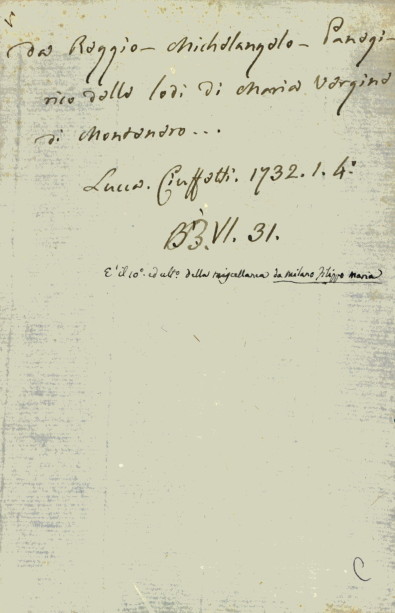 Da Reggio - Michelangelo - Panegi-
rico delle lodi di Maria Vergine
di Montenero...
Lucca. Ciuffetti. 1732. 1. 4°
BB. VI. 31.
E' il 10°. ed ult°. della miscellanea da Milano Filippo Maria
C